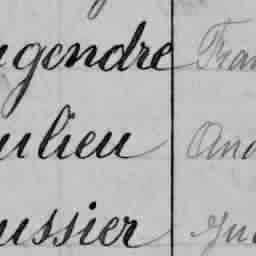 gendre Fran
ulieu And
ussier Ju